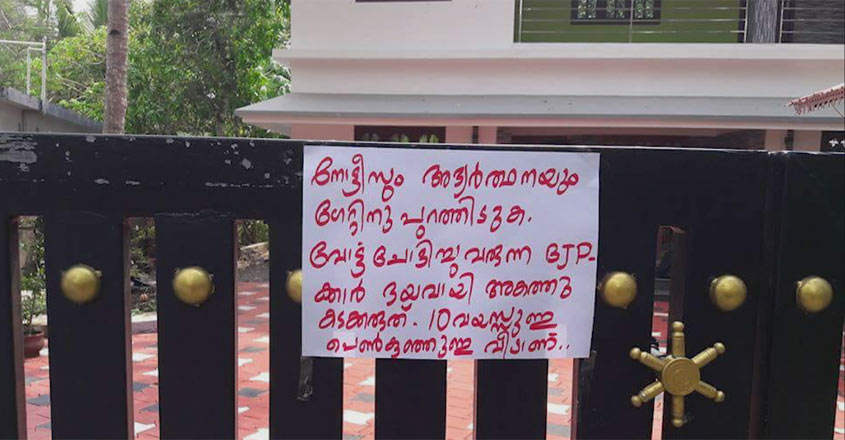 നോട്ടീസും അഭ്യർത്ഥനയും
ഗേറ്റിനു പുറത്തിടുക.
വോട്ട് ചോദിച്ചു വരുന്ന BJP-
ക്കാർ ദയവായി അകത്തു
കടക്കരുത്. 10 വയസ്സുള്ള
പെൺകുഞ്ഞുള്ള വീടാണ്..